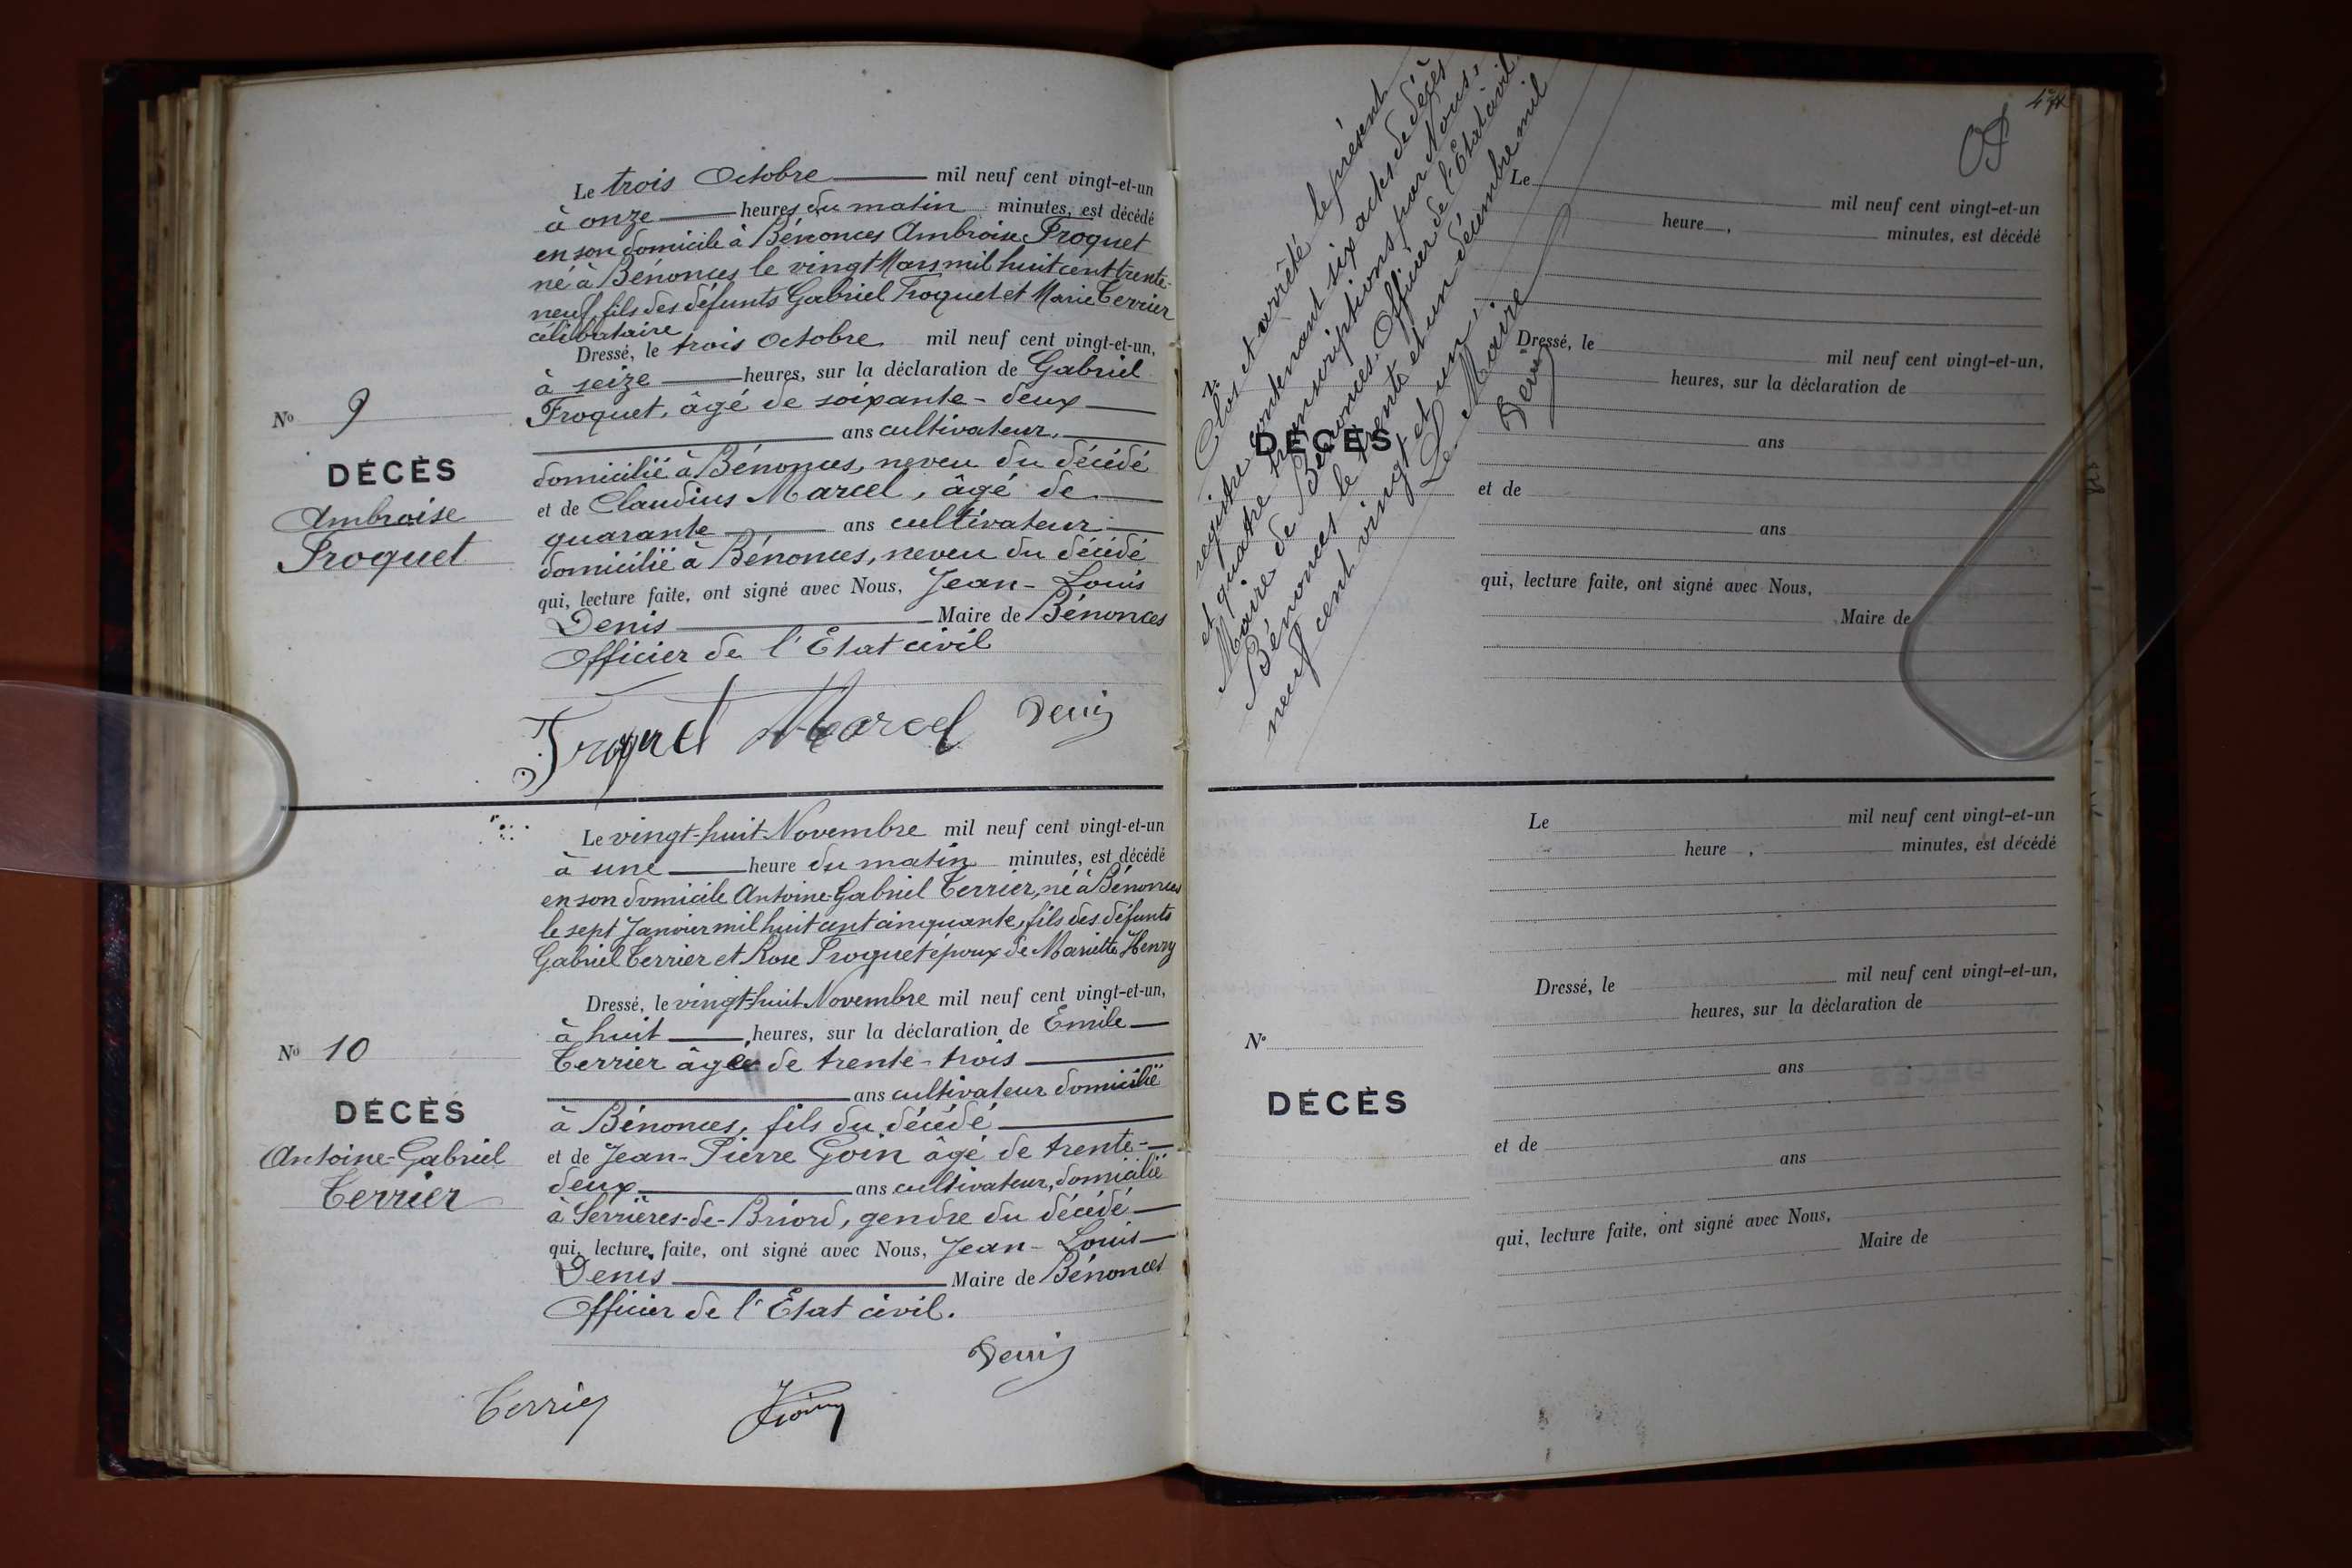 Le trois Octobre mil neuf cent vingt-et-un
à onze heures du matin minutes, est décédé
en son domicile à Bénonces Ambroise Troquet
né à Bénonces le vingt Mars mil huit cent trente-
neuf, fils des défunts Gabriel Troquet et Marie Terrier
célibataire
Dressé, le trois Octobre mil neuf cent vingt-et-un,
à seize heures, sur la déclaration de Gabriel
Troquet, âgé de soixante-deux
ans cultivateur,
domicilié à Bénonces, neveu du décédé
et de Claudius Marcel, âgé de
quarante ans cultivateur
domicilié à Bénonces, neveu du décédé
qui, lecture faite, ont signé avec Nous, Jean-Louis
Denis Maire de Bénonces
Officier de l'Etat civil
No 9
DÉCÈS
Ambroise
Troquet
Troquet Marcel Denis
Le vingt-huit Novembre mil neuf cent vingt-et-un
à une heure du matin minutes, est décédé
en son domicile Antoine-Gabriel Terrier, né à Bénonces
le sept Janvier mil huit cent cinquante, fils des défunts
Gabriel Terrier et Rose Troquet époux de Mariette Henry
Dressé, le vingt-huit Novembre mil neuf cent vingt-et-un,
à huit heures, sur la déclaration de Emile
Terrier âgé de trente-trois
ans cultivateur domicilié
à Bénonces, fils du décédé
et de Jean-Pierre Goin âgé de trente-
deux ans cultivateur, domicilié
à Serrières-de-Briord, gendre du décédé
qui, lecture faite, ont signé avec Nous, Jean-Louis
Denis Maire de Bénonces
Officier de l'Etat civil.
No 10
DÉCÈS
Antoine-Gabriel
Terrier
Denis
Terrier
Clos et arrêté le présent
registre contenant six actes de décès
et quatre transcriptions par Nous,
Maire de Bénonces, Officier de l'Etat civil
Bénonces le trente et un décembre mil
neuf cent vingt et un.
Le Maire
Denis
Le mil neuf cent vingt-et-un
heure , minutes, est décédé
Dressé, le mil neuf cent vingt-et-un,
heures, sur la déclaration de
ans
DÉCÈS
et de
ans
qui, lecture faite, ont signé avec Nous,
Maire de
Le mil neuf cent vingt-et-un
heure , minutes, est décédé
Dressé, le mil neuf cent vingt-et-un,
heures, sur la déclaration de
ans
No
DÉCÈS
et de
ans
qui, lecture faite, ont signé avec Nous,
Maire de